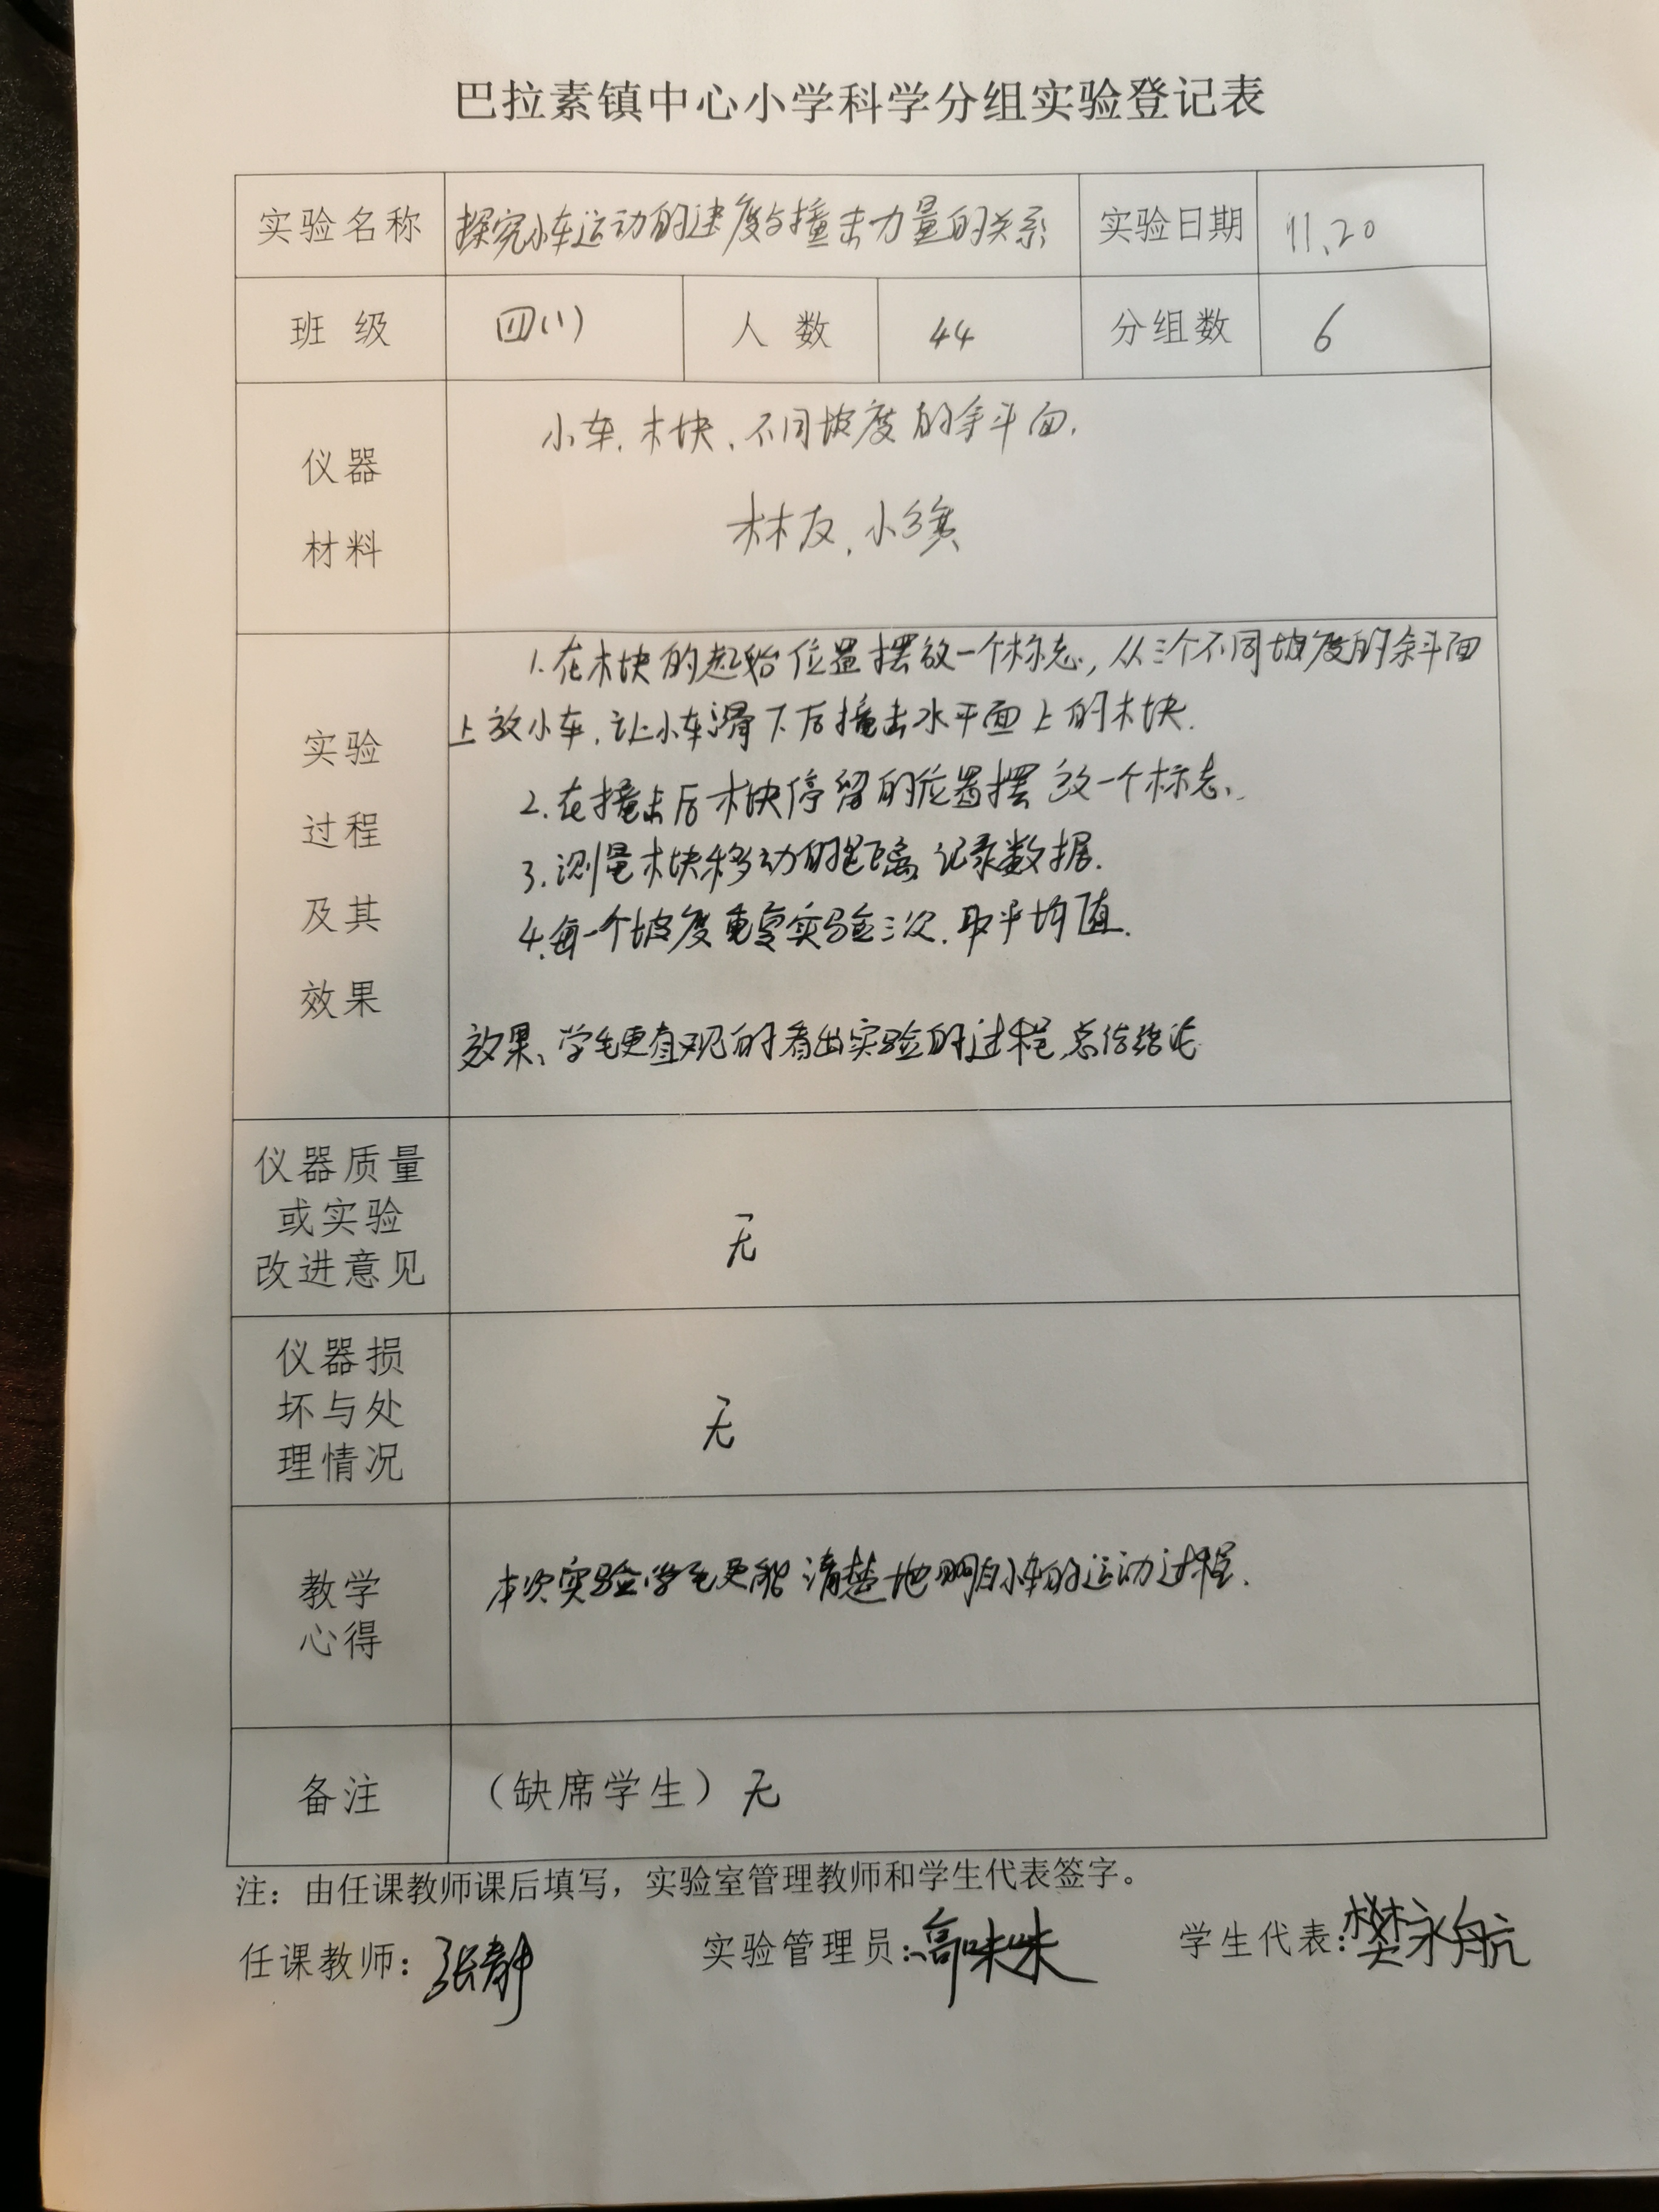 巴拉素镇中心小学科学分组实验登记表
实验名称 探究小车运动的速度与撞击力量的关系 实验日期 11.20
班 级 四(1) 人 数 44 分组数 6
仪器
材料
小车、木块、不同坡度的斜面.
木板、小
实验
过程
及其
效果
1.在木块的起始位置摆放一个标志,从三个不同坡度的斜面
上放小车,让小车滑下后撞击水平面上的木块.
2.在撞击后木块停留的位置摆放一个标志.
3.测量木块移动的距离,记录数据.
4.每一个坡度重复实验三次.取平均值.
效果、学生更直观的看出实验的过程,总结结论
仪器质量
或实验
改进意见
无
仪器损
坏与处
理情况
无
教学
心得
本次实验学生更能清楚地明白小车的运动过程.
备注 （缺席学生）无
注：由任课教师课后填写，实验室管理教师和学生代表签字。
任课教师：张静 实验管理员：高 学生代表：樊永航